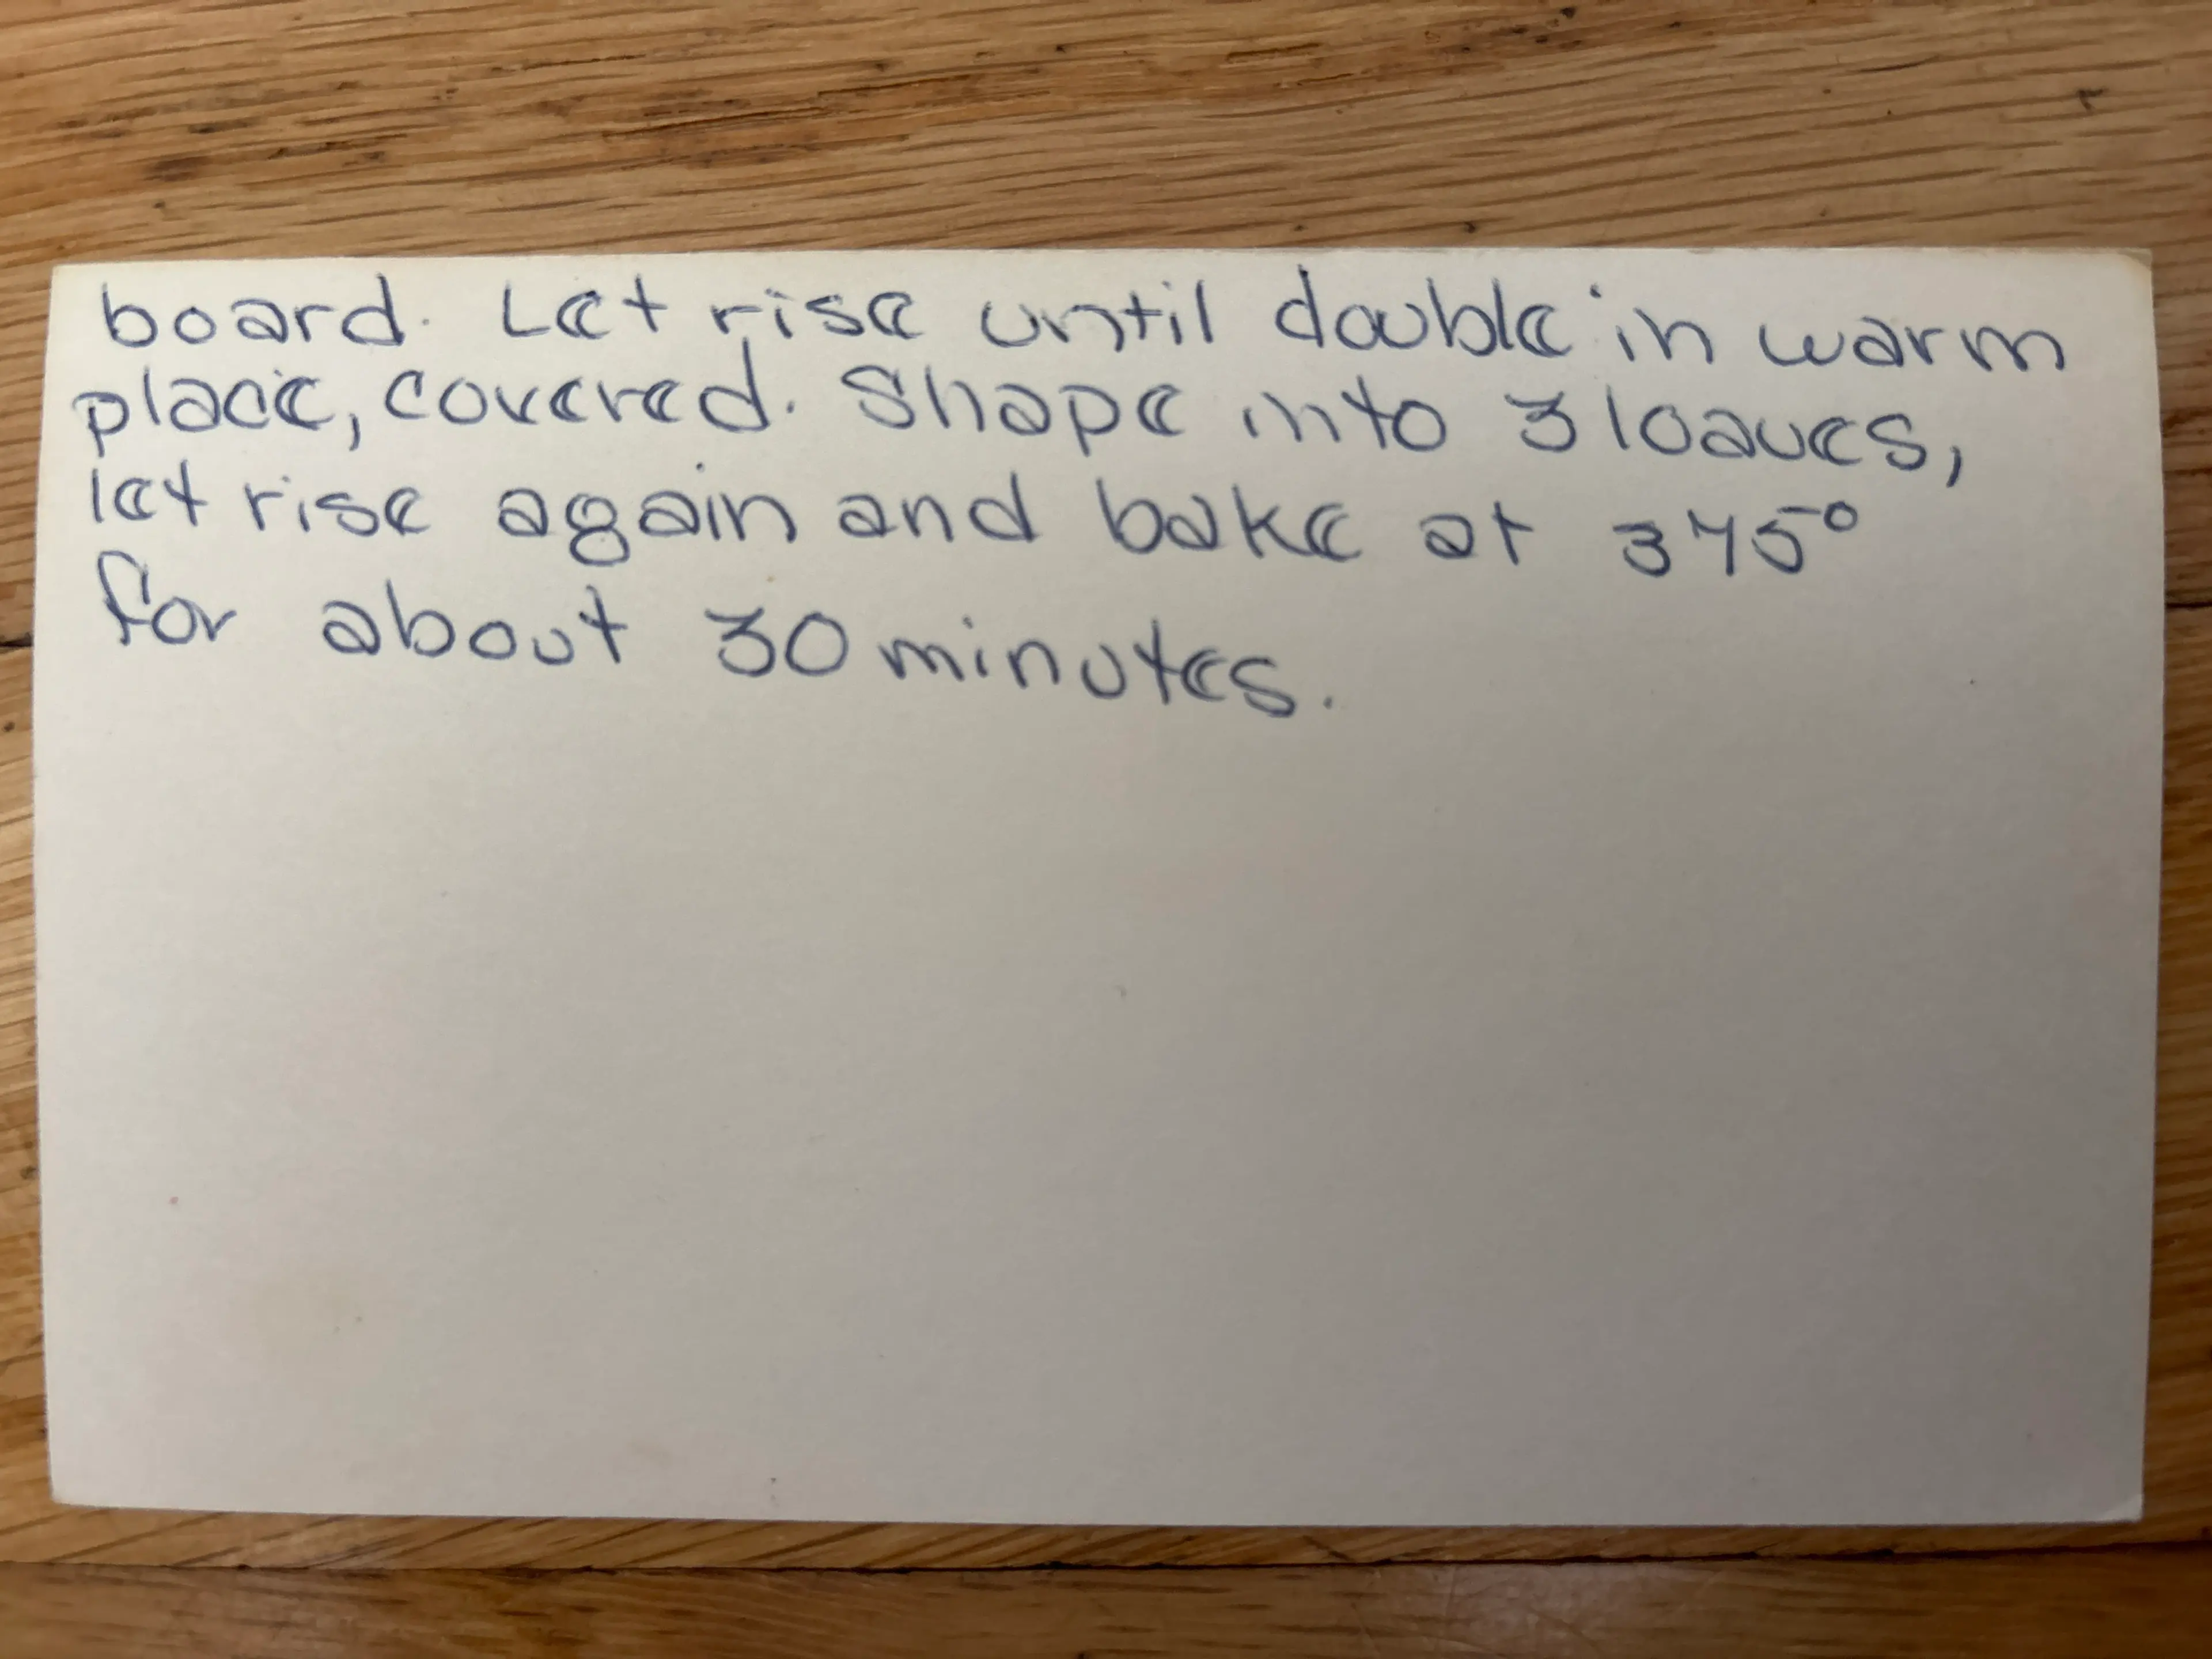 board. Let rise until double in warm
place, covered. Shape into 3 loaves,
let rise again and bake at 375°
for about 30 minutes.